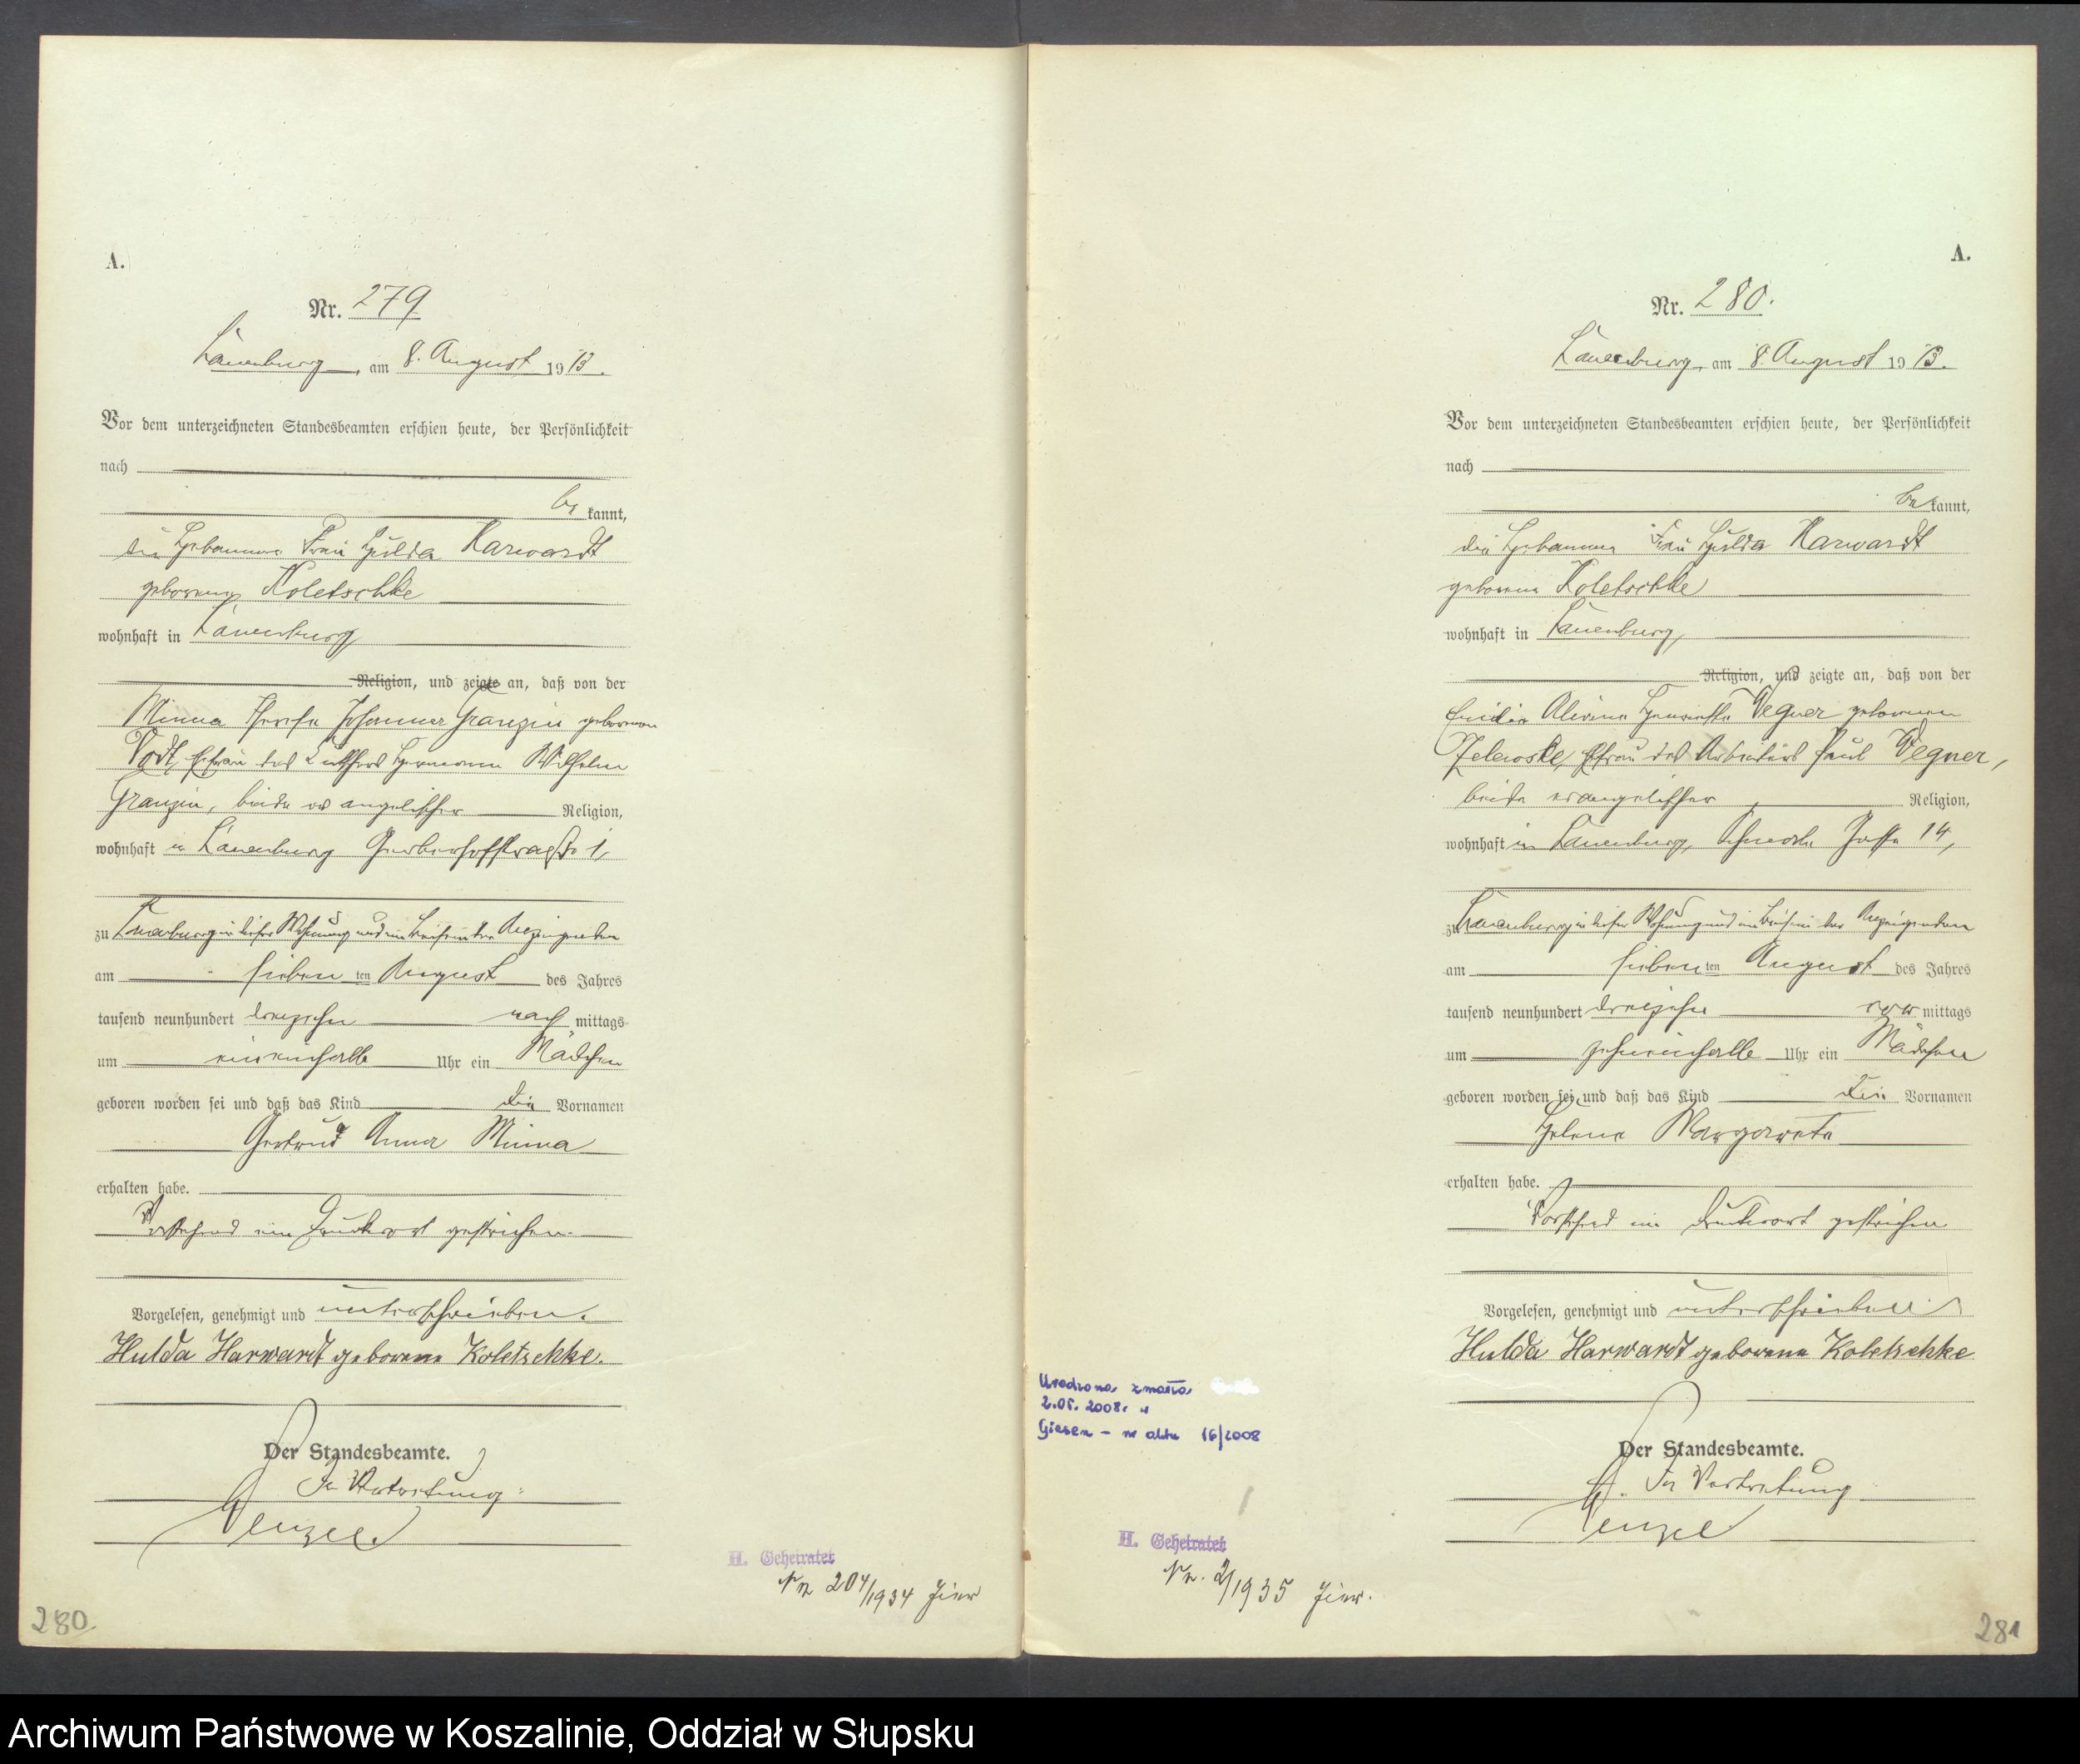 A.
Nr. 279
Lauenburg, am 8. August 1913.
Vor dem unterzeichneten Standesbeamten erschien heute, der Persönlichkeit
nach
be kannt,
die Hebamme Frau Hulda Harwardt
geborene Koletschke
wohnhaft in Lauenburg
Religion, und zeigte an, daß von der
Minna Therese Johanna Granzin geborenen
Vodt, Ehefrau des Hermann Wilhelm
Granzin, beide evangelischer Religion,
wohnhaft in Lauenburg Gerberhofstraße 1,
zu Lauenburg in dieser Wohnung und im Beisein der Anzeigenden
am sieben ten August des Jahres
tausend neunhundert dreizehn nach mittags
um ein einhalb Uhr ein Mädchen
geboren worden sei und daß das Kind die Vornamen
Gertrud Anna Minna
erhalten habe.
Vorstehend ein Druckwort gestrichen.
Vorgelesen, genehmigt und unterschrieben.
Hulda Harwardt geborene Koletschke.
Der Standesbeamte.
In Vertretung:
Wenzel.
H. Geheiratet
Nr 204/1934 hier
280
A.
Nr. 280.
Lauenburg, am 8 August 1913.
Vor dem unterzeichneten Standesbeamten erschien heute, der Persönlichkeit
nach
be kannt,
die Hebamme Frau Hulda Harwardt
geborene Koletschke
wohnhaft in Lauenburg,
Religion, und zeigte an, daß von der
Emilie Alwine Henriette Wegner geborenen
Zelewske, Ehefrau des Arbeiters Paul Wegner,
beide evangelischer Religion,
wohnhaft in Lauenburg, Gasse 14,
zu Lauenburg in dieser Wohnung und im Beisein der Anzeigenden
am sieben ten August des Jahres
tausend neunhundert dreizehn vor mittags
um zehn einhalb Uhr ein Mädchen
geboren worden sei und daß das Kind die Vornamen
Helene Margarete
erhalten habe.
Vorstehend ein Druckwort gestrichen
Vorgelesen, genehmigt und unterschrieben
Hulda Harwardt geborene Koletschke
Der Standesbeamte.
In Vertretung
Wenzel
Urodzona zmarła
2.05.2008r. w
Giesen - nr aktu 16/2008
H. Geheiratet
Nr. 2/1935 hier.
281
Archiwum Państwowe w Koszalinie, Oddział w Słupsku